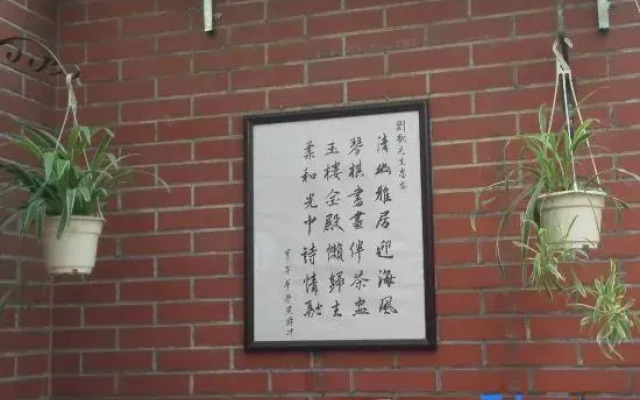 清幽雅居迎海風
琴棋書畫伴茶盅
玉樓金殿懶歸去
柔和光中詩情融
甲午年